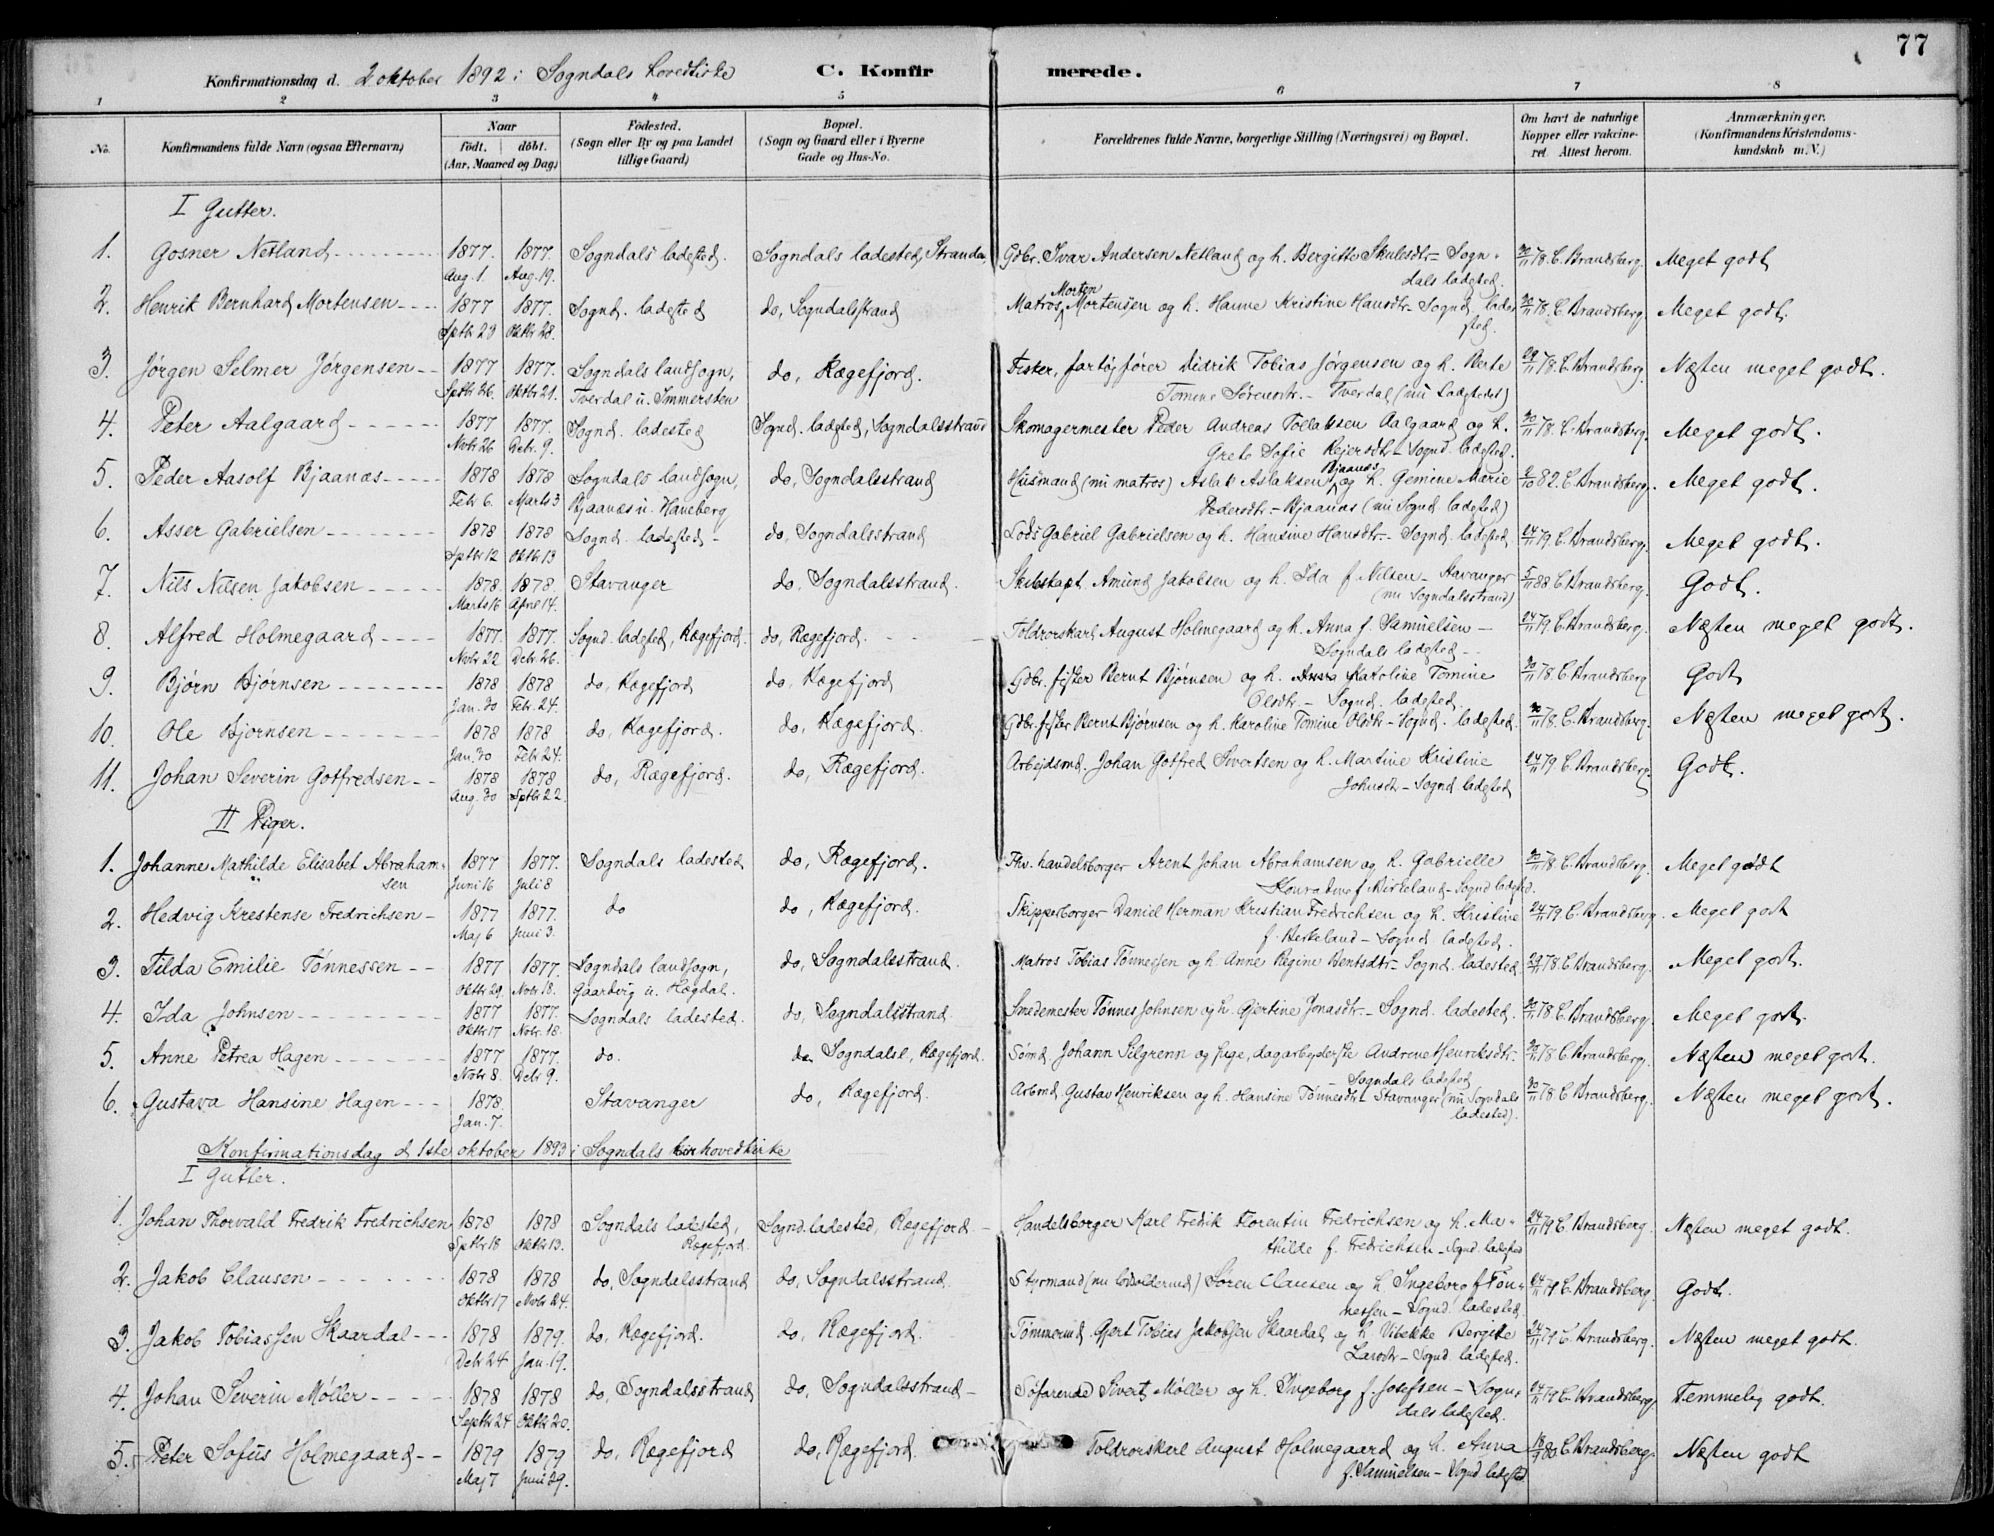 77
Konfirmationsdag d. 2 oktober 1892 i Sogndals hovedkirke C. Konfir merede.
1 2 3 4 5 6 7 8
No. Konfirmandens fulde Navn (ogsaa Efternavn) Naar født. døbt. (Aar, Maaned og Dag) Fødested. (Sogn eller By og paa Landet tillige Gaard) Bopæl. (Sogn og Gaard eller i Byerne Gade og Hus-No. Forældrenes fulde Navne, borgerlige Stilling (Næringsvei) og Bopæl. Om havt de naturlige Kopper eller vakcineret. Attest herom. Anmærkninger. (Konfirmandens Kristendomskundskab m. V.)
I Gutter.
1. Gosner Netland 1877. 1877. Sogndals ladested. Sogndals ladested, Stranden Gdbr. Ivar Andersen Netland og h. Bergitte Skulesdtr - Sogn- 30/11 78. C. Brandsberg. Meget godt
Aug. 1. Aug. 19. dals ladested.
2. Henrik Bernhard Mortensen 1877 1877. Sognd. ladested do, Sogndalstrand Matros Morten Mortensen og h. Hanne Kristine Hansdtr - Sognd. lade- 30/11 78. C. Brandsberg. Meget godt.
Sptbr 23 Oktbr 28. sted.
3. Jørgen Selmer Jørgensen 1877 1877. Sogndals landsogn, do, Rægefjord. Fisker, fartøjfører Didrik Tobias Jørgensen og h. Berte 29/11 78. C. Brandsberg. Næsten meget godt.
Sptbr 26. Oktbr 21. Tverdal u. Immersten Tomine Sørensdtr. - Tverdal (nu Ladestedet)
4. Peter Aalgaard 1877 1877. Sognd. ladested Sognd. ladested, Sogndalsstrand Skomagermester Peder Andreas Tollaksen Aalgaard og h. 30/11 78. C. Brandsberg. Meget godt.
Novbr 26 Decbr. 9. Grete Sofie Rejersdtr - Sognd. ladested.
5. Peder Aasolf Bjaanæs 1878 1878 Sogndals landsogn, do, Sogndalsstrand Husmand (nu matros) Aslak Aslaksen Bjaanæs og h. Gemine Marie 2/10 82. C. Brandsberg. Meget godt.
Febr 6. Marts 3 Bjaanæs u. Haneberg Pedersdtr - Bjaanæs (nu Sognd. ladested)
6. Asser Gabrielsen 1878 1878 Sognd. ladested - do, Sogndalsstrand Lods Gabriel Gabrielsen og h. Hansine Hansdtr - Sognd. ladested 24/11 79. C. Brandsberg. Meget godt.
Sptbr 12 Oktbr 13
7. Nils Nilsen Jakobsen 1878. 1878 Stavanger do, Sogndalsstrand. Skibskapt. Amund Jakobsen og h. Ida f. Nilsen - Stavanger 5/11 88 C. Brandsberg. Godt.
Marts 16 April 14. (nu Sogndalsstrand)
8. Alfred Holmegaard 1877. 1877. Sognd. ladested, Rægefjord. do, Rægefjord. Toldrorskarl August Holmegaard og h. Anna f. Samuelsen - 24/11 79. C. Brandsberg. Næsten meget godt.
Novbr 22 Decbr 26. Sogndals ladested -
9. Bjørn Bjørnsen 1878 1878 do, Rægefjord do, Rægefjord Gdbr. fisker Bernt Bjørnsen og h. Karoline Tomine 30/11 78. C. Brandsberg Godt
Jan. 30 Febr. 24. Olsdtr. - Sognd. ladested.
10. Ole Bjørnsen 1878 1878 do, Rægefjord. do, Rægefjord. Gdbr. fisker Bernt Bjørnsen og h. Karoline Tomine Olsdtr - Sognd. ladested. 30/11 78. C. Brandsberg. Næsten meget godt.
Jan. 30 Febr 24.
11. Johan Severin Gotfredsen 1878 1878 do, Rægefjord. do, Rægefjord. Arbejdsmd. Johan Gotfred Sivertsen og h. Martine Kristine 24/11 79 C. Brandsberg. Godt.
Aug. 30 Sptbr 22. Johnsdtr - Sognd ladested
II Piger.
1. Johanne Mathilde Elisabet Abraham- 1877 1877. Sogndals ladested do, Rægefjord. Fhv. handelsborger Arent Johan Abrahamsen og h. Gabrielle 30/11 78 C. Brandsberg. Meget godt
sen Juni 16 Juli 8 Konradine f. Birkeland - Sognd ladested.
2. Hedvig Krestense Fredrichsen 1877 1877. do do, Rægefjord. Skipperborger Daniel Herman Kristian Fredrichsen og h. Kristine 24/11 79 C. Brandsberg. Meget godt
Maj 6 Juni 3. f. Berkeland - Sognd ladested.
3. Tilda Emilie Tønnessen 1877 1877. Sogndals landsogn, do, Sogndalsstrand. Matros Tobias Tønnessen og h. Anne Regine Bentsdtr - Sognd. ladested 29/11 78. C. Brandsberg. Meget godt.
Oktbr 29. Novbr 18. Gaardvig u. Hægdal.
4. Ida Johnsen 1877 1877. Sogndals ladested. do, Sogndalsstrand. Smedemester Tønnes Johnsen og h. Gjertine Jonasdtr - Sognd. ladested. 30/11 78 C. Brandsberg. Meget godt.
Oktbr 17 Novbr. 18.
5. Anne Petrea Hagen 1877 1877. do. do Sogndalsl, Rægefjord. Sømd. Johann Silgrenn og pige, dagarbejderske Andrine Henriksdtr - 30/11 78 C. Brandsberg. Næsten meget godt.
Novbr 8. Decbr 9. Sogndals ladested
6. Gustava Hansine Hagen 1878. Stavanger do, Rægefjord. Arbmd. Gustav Henriksen og h. Hansine Tønnesdtr - Stavanger (nu Sogndals 30/11 78. C. Brandsberg. Næsten meget godt.
Jan. 7. ladested).
Konfirmationsdag d. 1ste oktober 1893 i Sogndals hovedkirke
I Gutter.
1. Johan Thorvald Fredrik Fredrichsen 1878 1878 Sogndals ladested, Sognd. ladested, Rægefjord - Handelsborger Karl Fredik Florentin Fredrichsen og h. Ma- 24/11 79 C. Brandsberg. Næsten meget godt.
Sptbr 18 Oktbr 13. Rægefjord. thilde f. Fredrichsen - Sognd ladested
2. Jakob Clausen 1878 1878 do, Sogndalsstrand do, Sogndalsstrand. Styrmand (nu ) Søren Clausen og h. Ingeborg f. Tøn- 24/11 79 C. Brandsberg. Godt.
Oktbr 17 Novbr 24. nessen - Sognd. ladested.
3. Jakob Tobiassen Skaardal 1878 1879. do, Rægefjord. do, Rægefjord. Tømmermd. Gjert Tobias Jakobsen Skaardal og h. Vibekke Bergitte 24/11 79 C. Brandsberg. Næsten meget godt.
Decbr 24 Jan. 19. Larsdtr - Sognd. ladested.
4. Johan Severin Møller 1878 1878 do, Sogndalsstrand do, Sogndalsstrand - Søfarende Sivert Møller og h. Ingeborg f. Josefsen - Sogn- 24/11 79 C. Brandsberg. Temmelig godt.
Septbr 24 Oktbr 20. dals ladested.
5. Peter Sofus Holmegaard 1879 1879 do, Rægefjord do, Rægefjord. Toldrorskarl August Holmegaard og h. Anna 18/7 80 C. Brandsberg. Næsten godt
Maj 7 Juni 29. f. Samuelsen - Sognd ladested